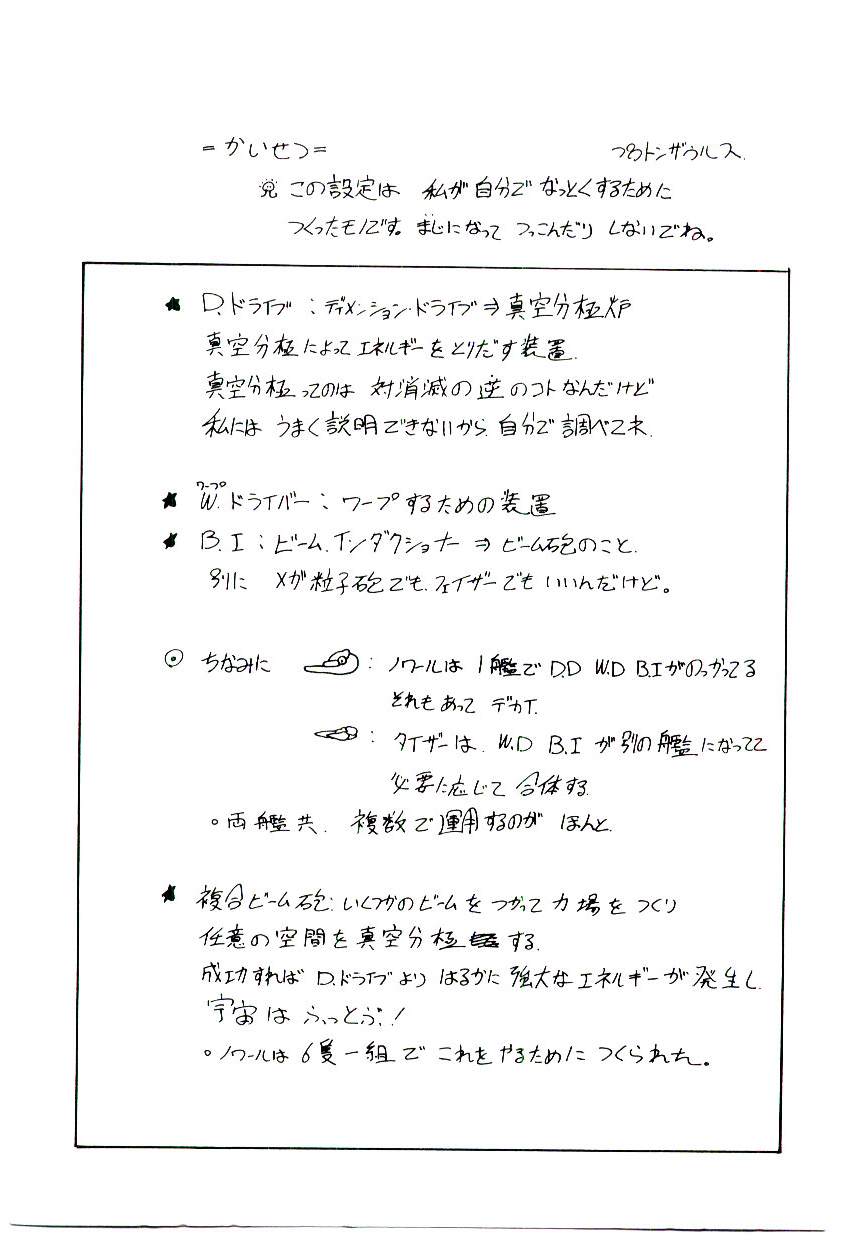 =かいせつ=
つるトンザウルス.
※ この設定は 私が自分で なっとくするために
つくったモノです。まじになって つっこんだり しないでね。
★ D.ドライブ : ディメンション・ドライブ⇒真空分極炉
真空分極によって エネルギーをとりだす装置.
真空分極ってのは 対消滅の逆のコトなんだけど
私には うまく説明できないから. 自分で調べてネ.
ワープ
★ W.ドライバー : ワープするための装置
★ B.I : ビーム.インダクショナー ⇒ ビーム砲のこと.
別に メガ粒子砲でも.フェイザーでも いいんだけど。
◎ ちなみに : ノワールは 1艦で D.D W.D B.Iがのっかってる
それもあって デカイ.
: タイザーは. W.D B.I が別の艦になってて
必要に応じて 合体する.
○両艦共. 複数で運用するのが ほんと.
★ 複合ビーム砲: いくつかのビームを つかって 力場を つくり
任意の空間を真空分極 する.
成功すれば D.ドライブより はるかに 強大なエネルギーが発生し.
宇宙は ふっとぶ!
○ノワールは 6隻一組で これをやるために つくられた。